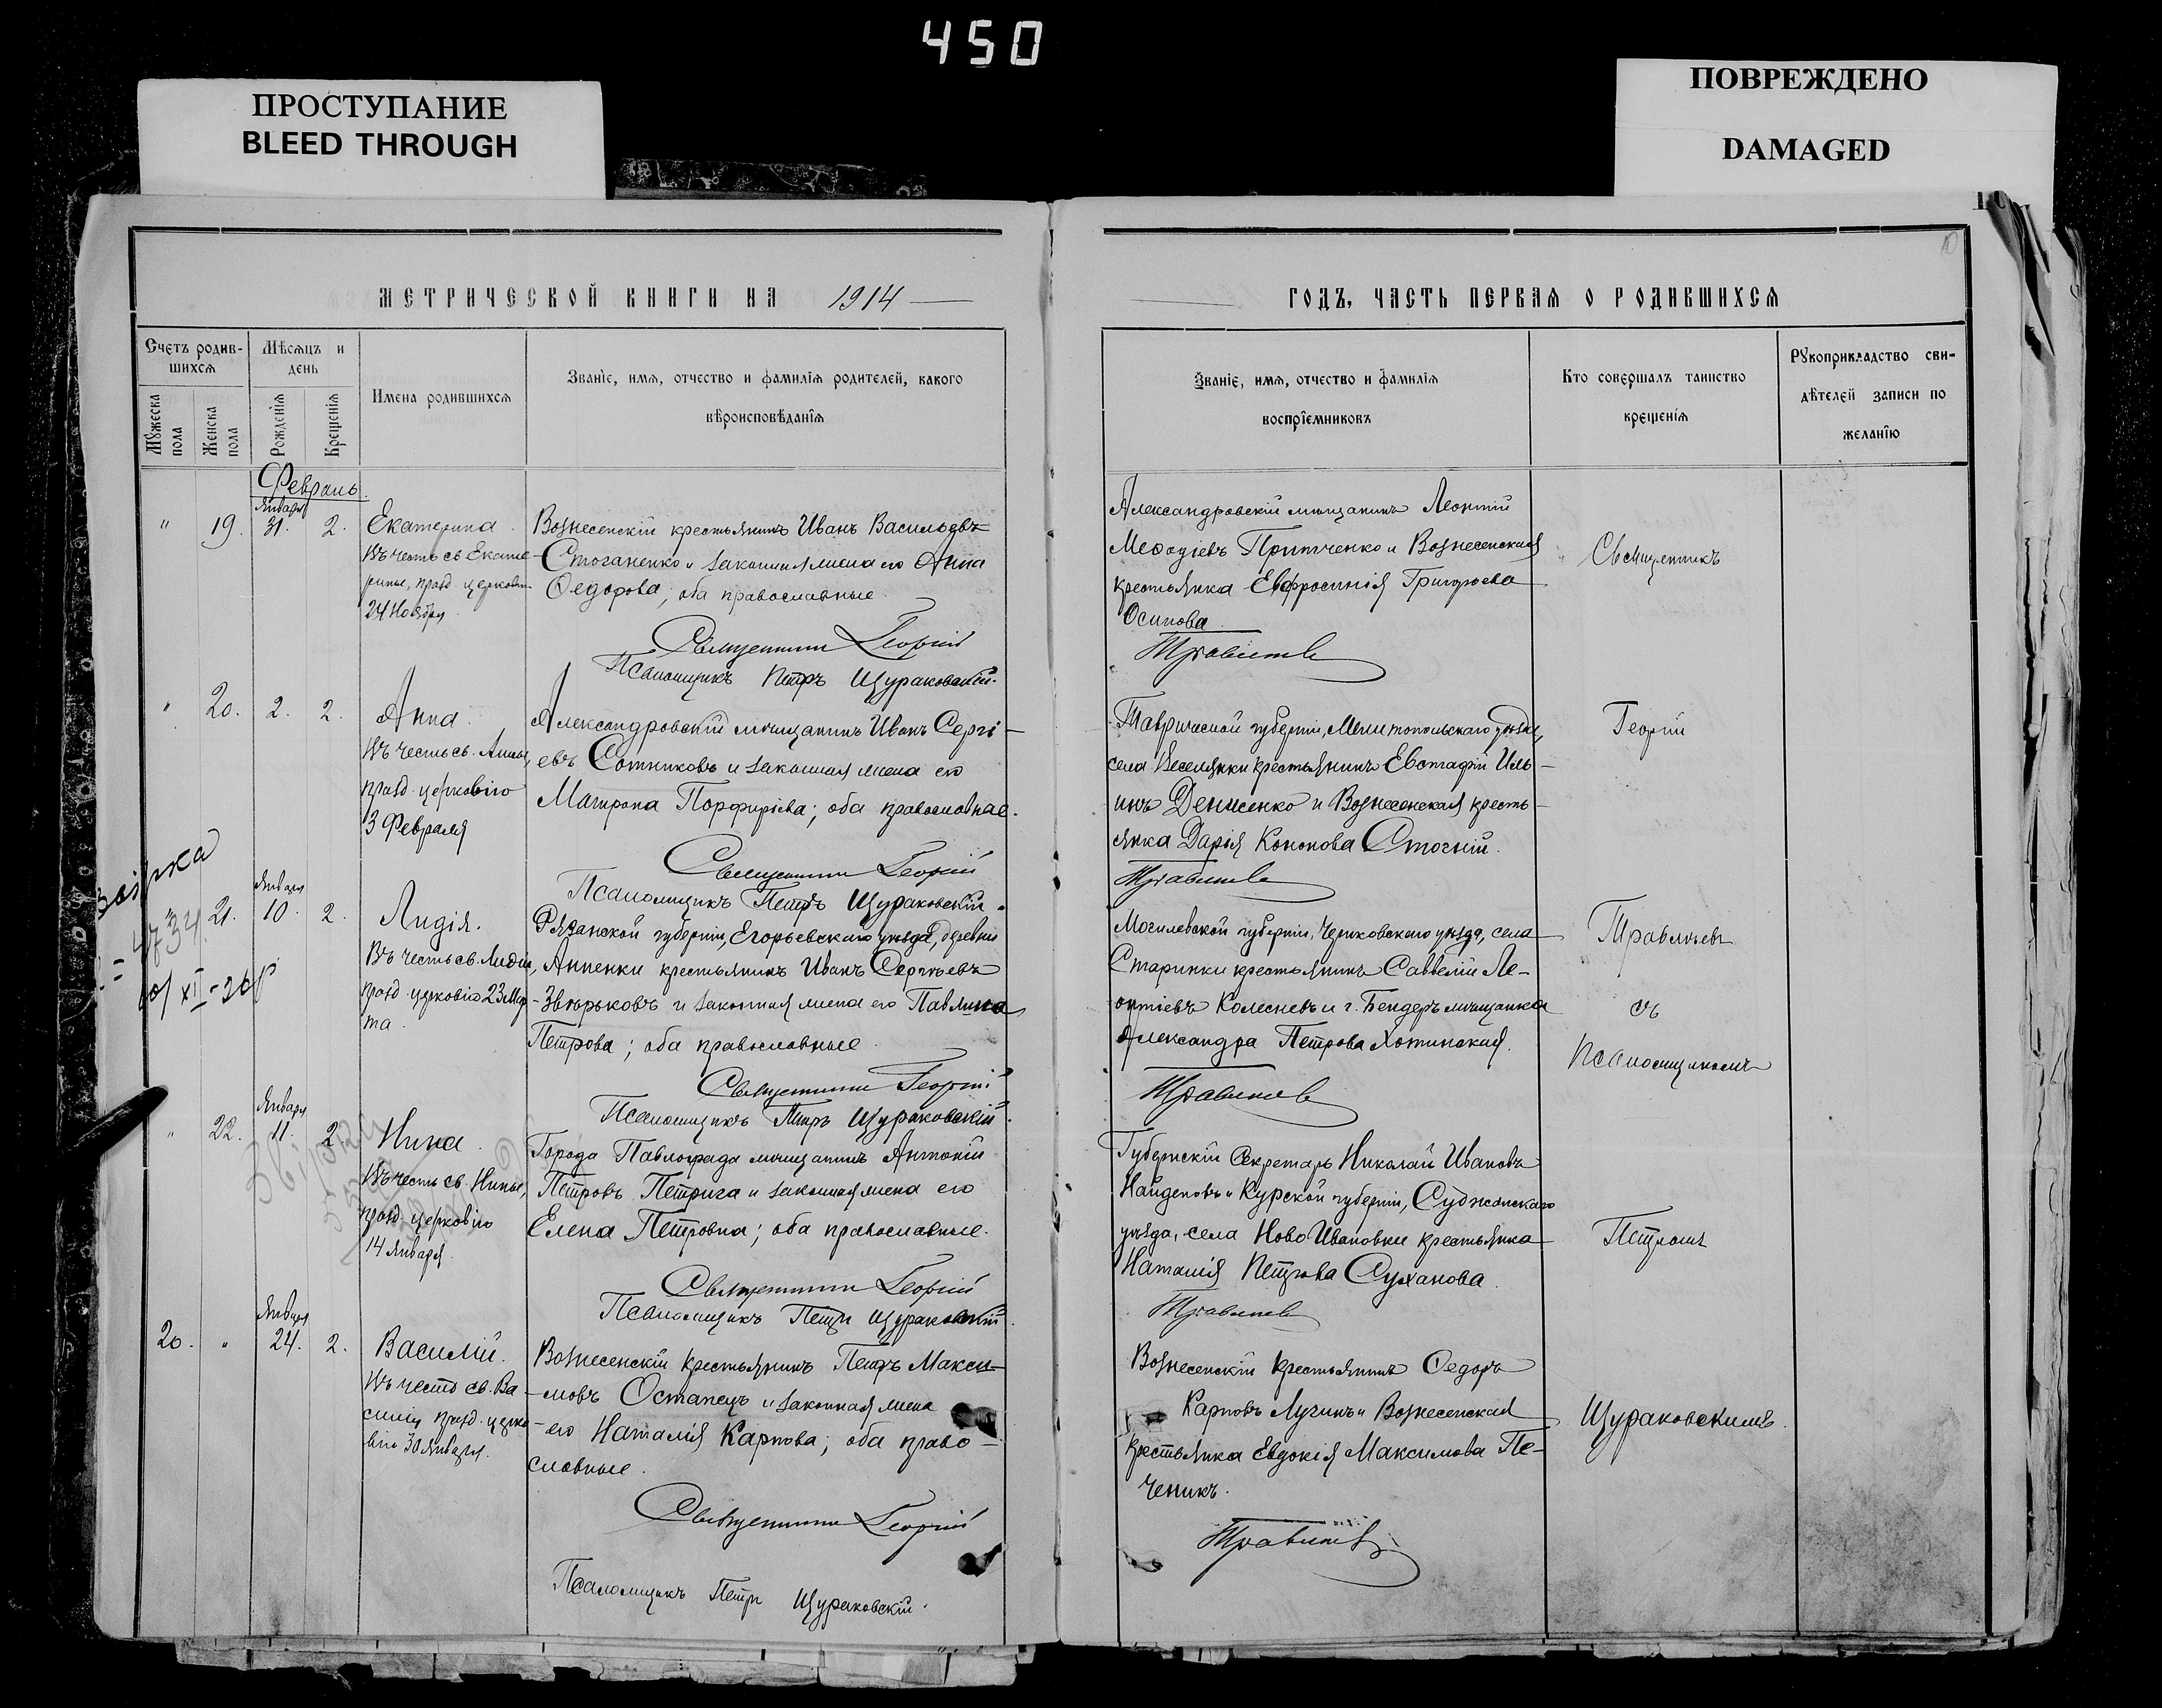 450
ПРОСТУПАНИЕ
BLEED THROUGH
ПОВРЕЖДЕНО
DAMAGED
МЕТРИЧЕСКОЙ КНИГИ НА 1914
Счетъ родив-
шихся
Мѣсяцъ и
день
Мужеска
пола
Женска
пола
Рожденія
Крещенія
Имена родившихся
Званіе, имя, отчество и фамилія родителей, какого
вѣроисповѣданія
Февраль.
Января
" 19. 31. 2. Екатерина. Вознесенскій крестьянинъ Иванъ Васильевъ
Въ честь св. Екате- Стоганенко и законная жена его Анна
рины, празд. церковію Ѳедорова; оба православные
24 Ноября.
Священникъ Георгій
Псаломщикъ Петръ Щураковскій.
" 20. 2. 2. Анна. Александровскій мѣщанинъ Иванъ Сергі-
Въ честь св. Анны, евъ Сотниковъ и законная жена его
празд. церковію Матрона Порфиріева; оба православные.
3 Февраля
Священникъ Георгій
Псаломщикъ Петръ Щураковскій.
Января
" 21. 10. 2. Лидія. Рязанской губерніи, Егорьевскаго уѣзда, деревни
Въ честь св. Лидіи, Анненки крестьянинъ Иванъ Сергѣевъ
празд. церковію 23 Мар- Звѣрьковъ и законная жена его Павлина
та. Петрова; оба православные.
Священникъ Георгій
Псаломщикъ Петръ Щураковскій.
Января
" 22. 11. 2. Нина. Города Павлограда мѣщанинъ Антоній
Въ честь св. Нины, Петровъ Петрига и законная жена его
празд. церковію Елена Петровна; оба православные.
14 Января.
Священникъ Георгій
Псаломщикъ Петръ Щураковскій.
Января
20. " 24. 2. Василій. Вознесенскій крестьянинъ Петръ Макси-
Въ честь св. Ва- мовъ Остапецъ и законная жена
силія празд. церко- его Наталія Карпова; оба право-
вію 30 Января. славные.
Священникъ Георгій
Псаломщикъ Петръ Щураковскій.
ГОДЪ, ЧАСТЬ ПЕРВАЯ О РОДИВШИХСЯ
Званіе, имя, отчество и фамилія
воспріемниковъ
Кто совершалъ таинство
крещенія
Рукоприкладство сви-
дѣтелей записи по
желанію
Александровскій мѣщанинъ Леонтій
Меѳодіевъ Притченко и Вознесенская
крестьянка Евфросинія Григорьева
Осипова.
Травлѣевъ
Таврической губерніи, Мелитопольскаго уѣзда,
села Веселянки крестьянинъ Евстафій Иль-
инъ Денисенко и Вознесенская кресть-
янка Дарья Кононова Стогній.
Травлѣевъ
Могилевской губерніи, Чериковскаго уѣзда, села
Старинки крестьянинъ Саввелій Ле-
онтіевъ Колесневъ и г. Бендеръ мѣщанка
Александра Петрова Хотинская.
Травлѣевъ
Губернскій Секретарь Николай Ивановъ
Найденовъ и Курской губерніи, Суджанскаго
уѣзда, села Ново Ивановки крестьянка
Наталія Петрова Суханова.
Травлѣевъ
Вознесенскій крестьянинъ Ѳедоръ
Карповъ Лучинъ и Вознесенская
крестьянка Евдокія Максимова Пе-
ченикъ.
Травлѣевъ
Священникъ
Георгій
Травлѣевъ
съ
Псаломщикомъ
Петромъ
Щураковскимъ.